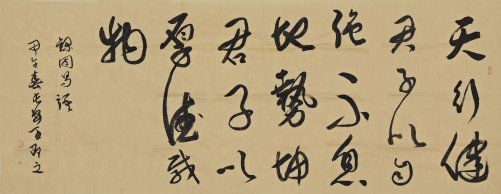 天行健
君子以自
強不息
地勢坤
君子以
厚德載
物
錄周易語
甲午春